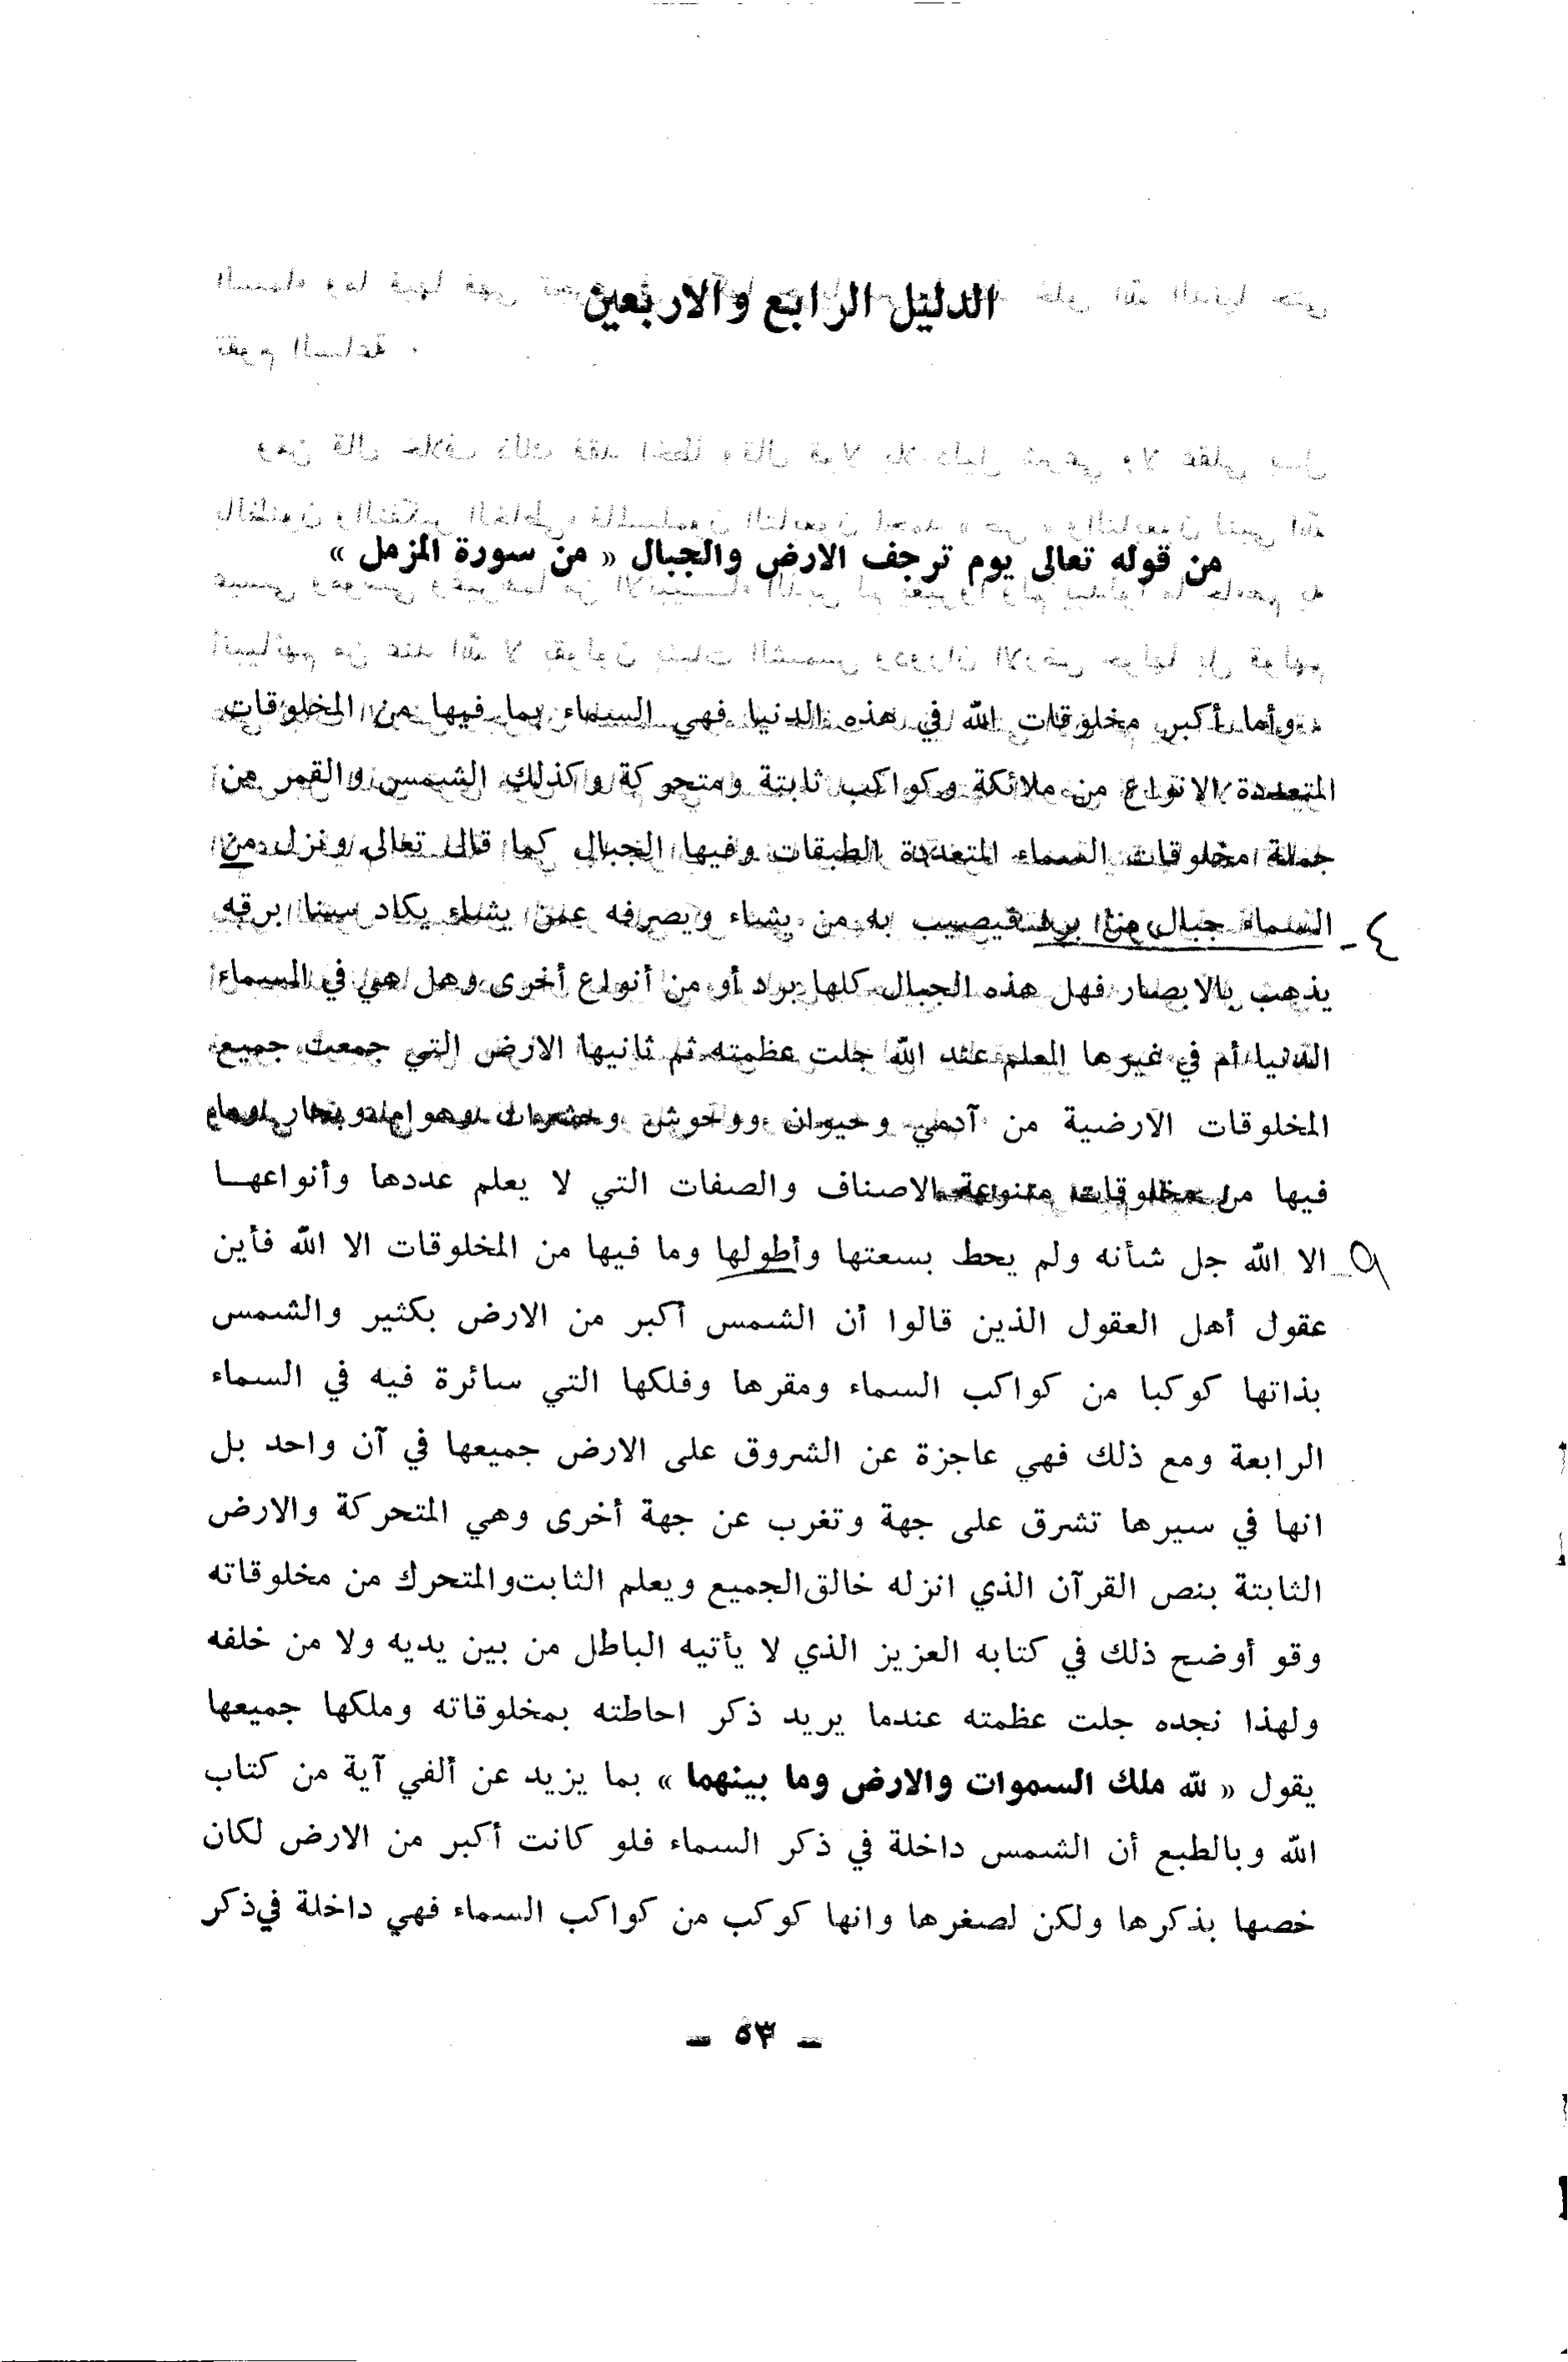 الدليل الرابع والاربعين
من قوله تعالى يوم ترجف الارض والجبال « من سورة المزمل »
وأما أكبر مخلوقات الله في هذه الدنيا فهي السماء بما فيها من المخلوقات
المتعددة الانواع من ملائكة وكواكب ثابتة ومتحركة وكذلك الشمس والقمر من
جملة مخلوقات السماء المتعددة الطبقات وفيها الجبال كما قال تعالى ونزل من
السماء جبال من برد فيصيب به من يشاء ويصرفه عمن يشاء يكاد سنا برقه
٤-
يذهب بالابصار فهل هذه الجبال كلها برد أو من أنواع أخرى وهل هي في السماء
الدنيا أم في غيرها العلم عند الله جلت عظمته ثم ثانيها الارض التي جمعت جميع
المخلوقات الارضية من آدمي وحيوان ووحوش وحشرات وهوام وبحار وما
فيها من مخلوقات متنوعة الاصناف والصفات التي لا يعلم عددها وأنواعهـا
الا الله جل شأنه ولم يحط بسعتها وأطولها وما فيها من المخلوقات الا الله فأين
٩-
عقول أهل العقول الذين قالوا أن الشمس أكبر من الارض بكثير والشمس
بذاتها كوكبا من كواكب السماء ومقرها وفلكها التي سائرة فيه في السماء
الرابعة ومع ذلك فهي عاجزة عن الشروق على الارض جميعها في آن واحد بل
انها في سيرها تشرق على جهة وتغرب عن جهة أخرى وهي المتحركة والارض
الثابتة بنص القرآن الذي انزله خالق الجميع ويعلم الثابت والمتحرك من مخلوقاته
وقو أوضح ذلك في كتابه العزيز الذي لا يأتيه الباطل من بين يديه ولا من خلفه
ولهذا نجده جلت عظمته عندما يريد ذكر احاطته بمخلوقاته وملكها جميعها
يقول « لله ملك السموات والارض وما بينهما » بما يزيد عن ألفي آية من كتاب
الله وبالطبع أن الشمس داخلة في ذكر السماء فلو كانت أكبر من الارض لكان
خصها بذكرها ولكن لصغرها وانها كوكب من كواكب السماء فهي داخلة في ذكر
- ٥٣ -